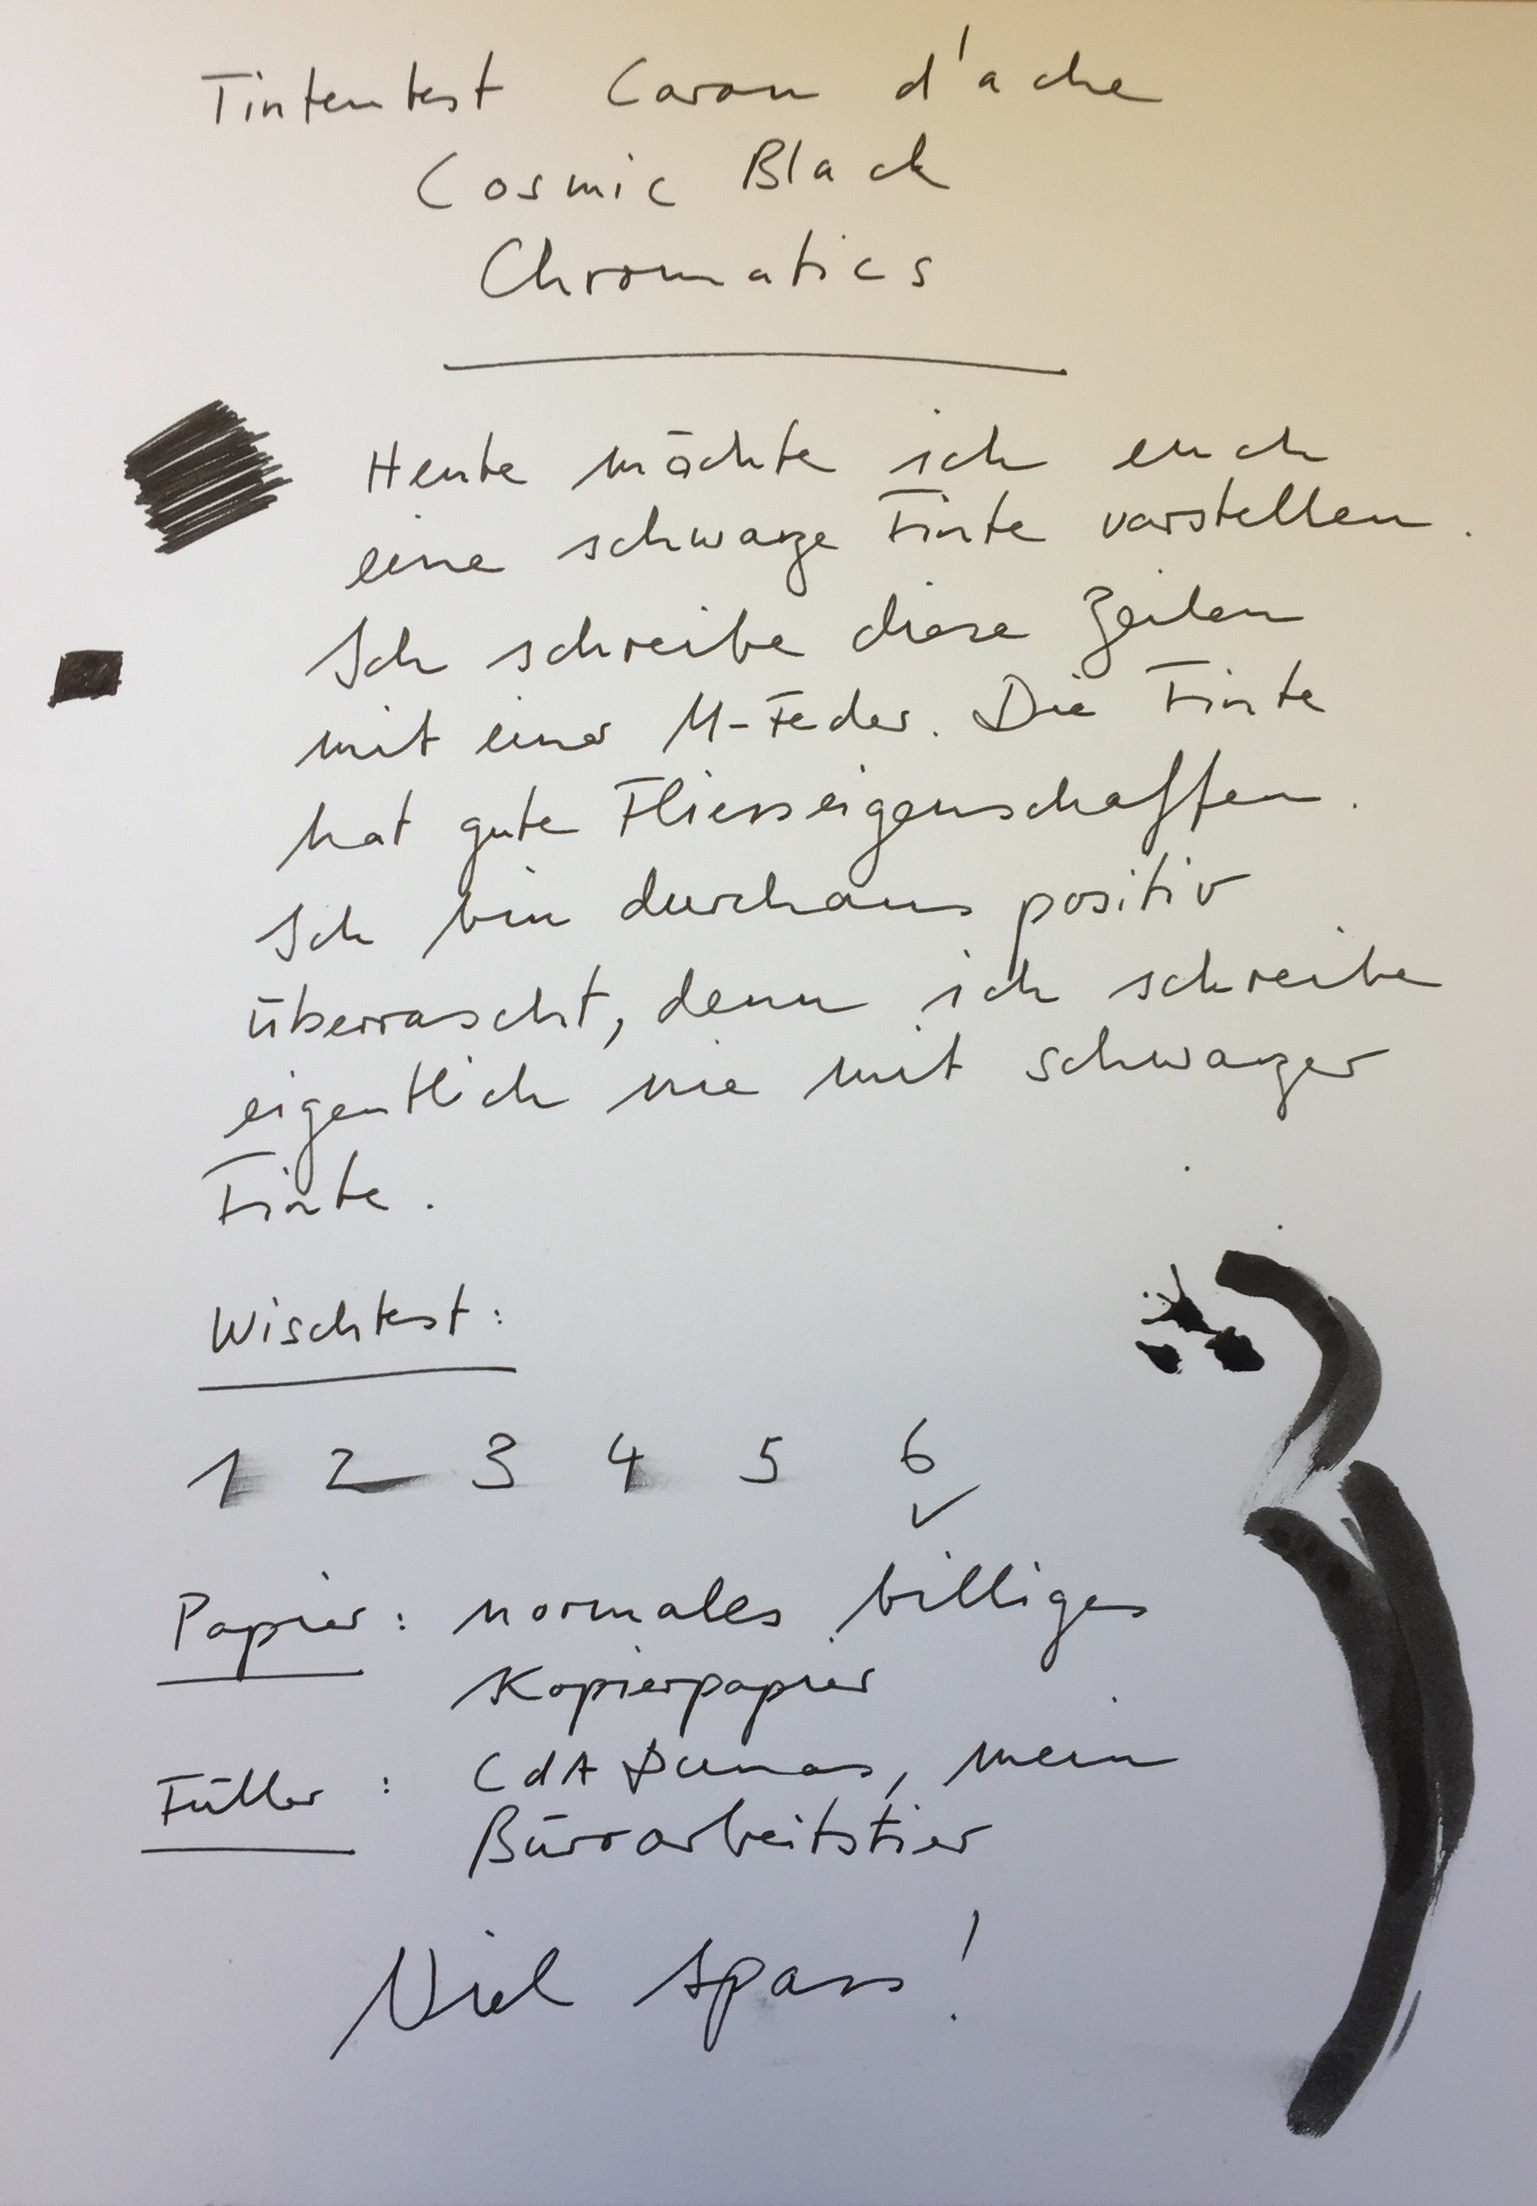 Tintentest Caran d'ache
Cosmic Black
Chromatics
Heute möchte ich euch
eine schwarze Tinte vorstellen.
Ich schreibe diese Zeilen
mit einer M-Feder. Die Tinte
hat gute Fliesseigenschaften.
Ich bin durchaus positiv
überrascht, denn ich schreibe
eigentlich nie mit schwarzer
Tinte.
Wischtest:
1 2 3 4 5 6
✓
Papier: normales billiges
Kopierpapier
Füller: CdA Dunas, mein
Büroarbeitstier
Viel Spass!